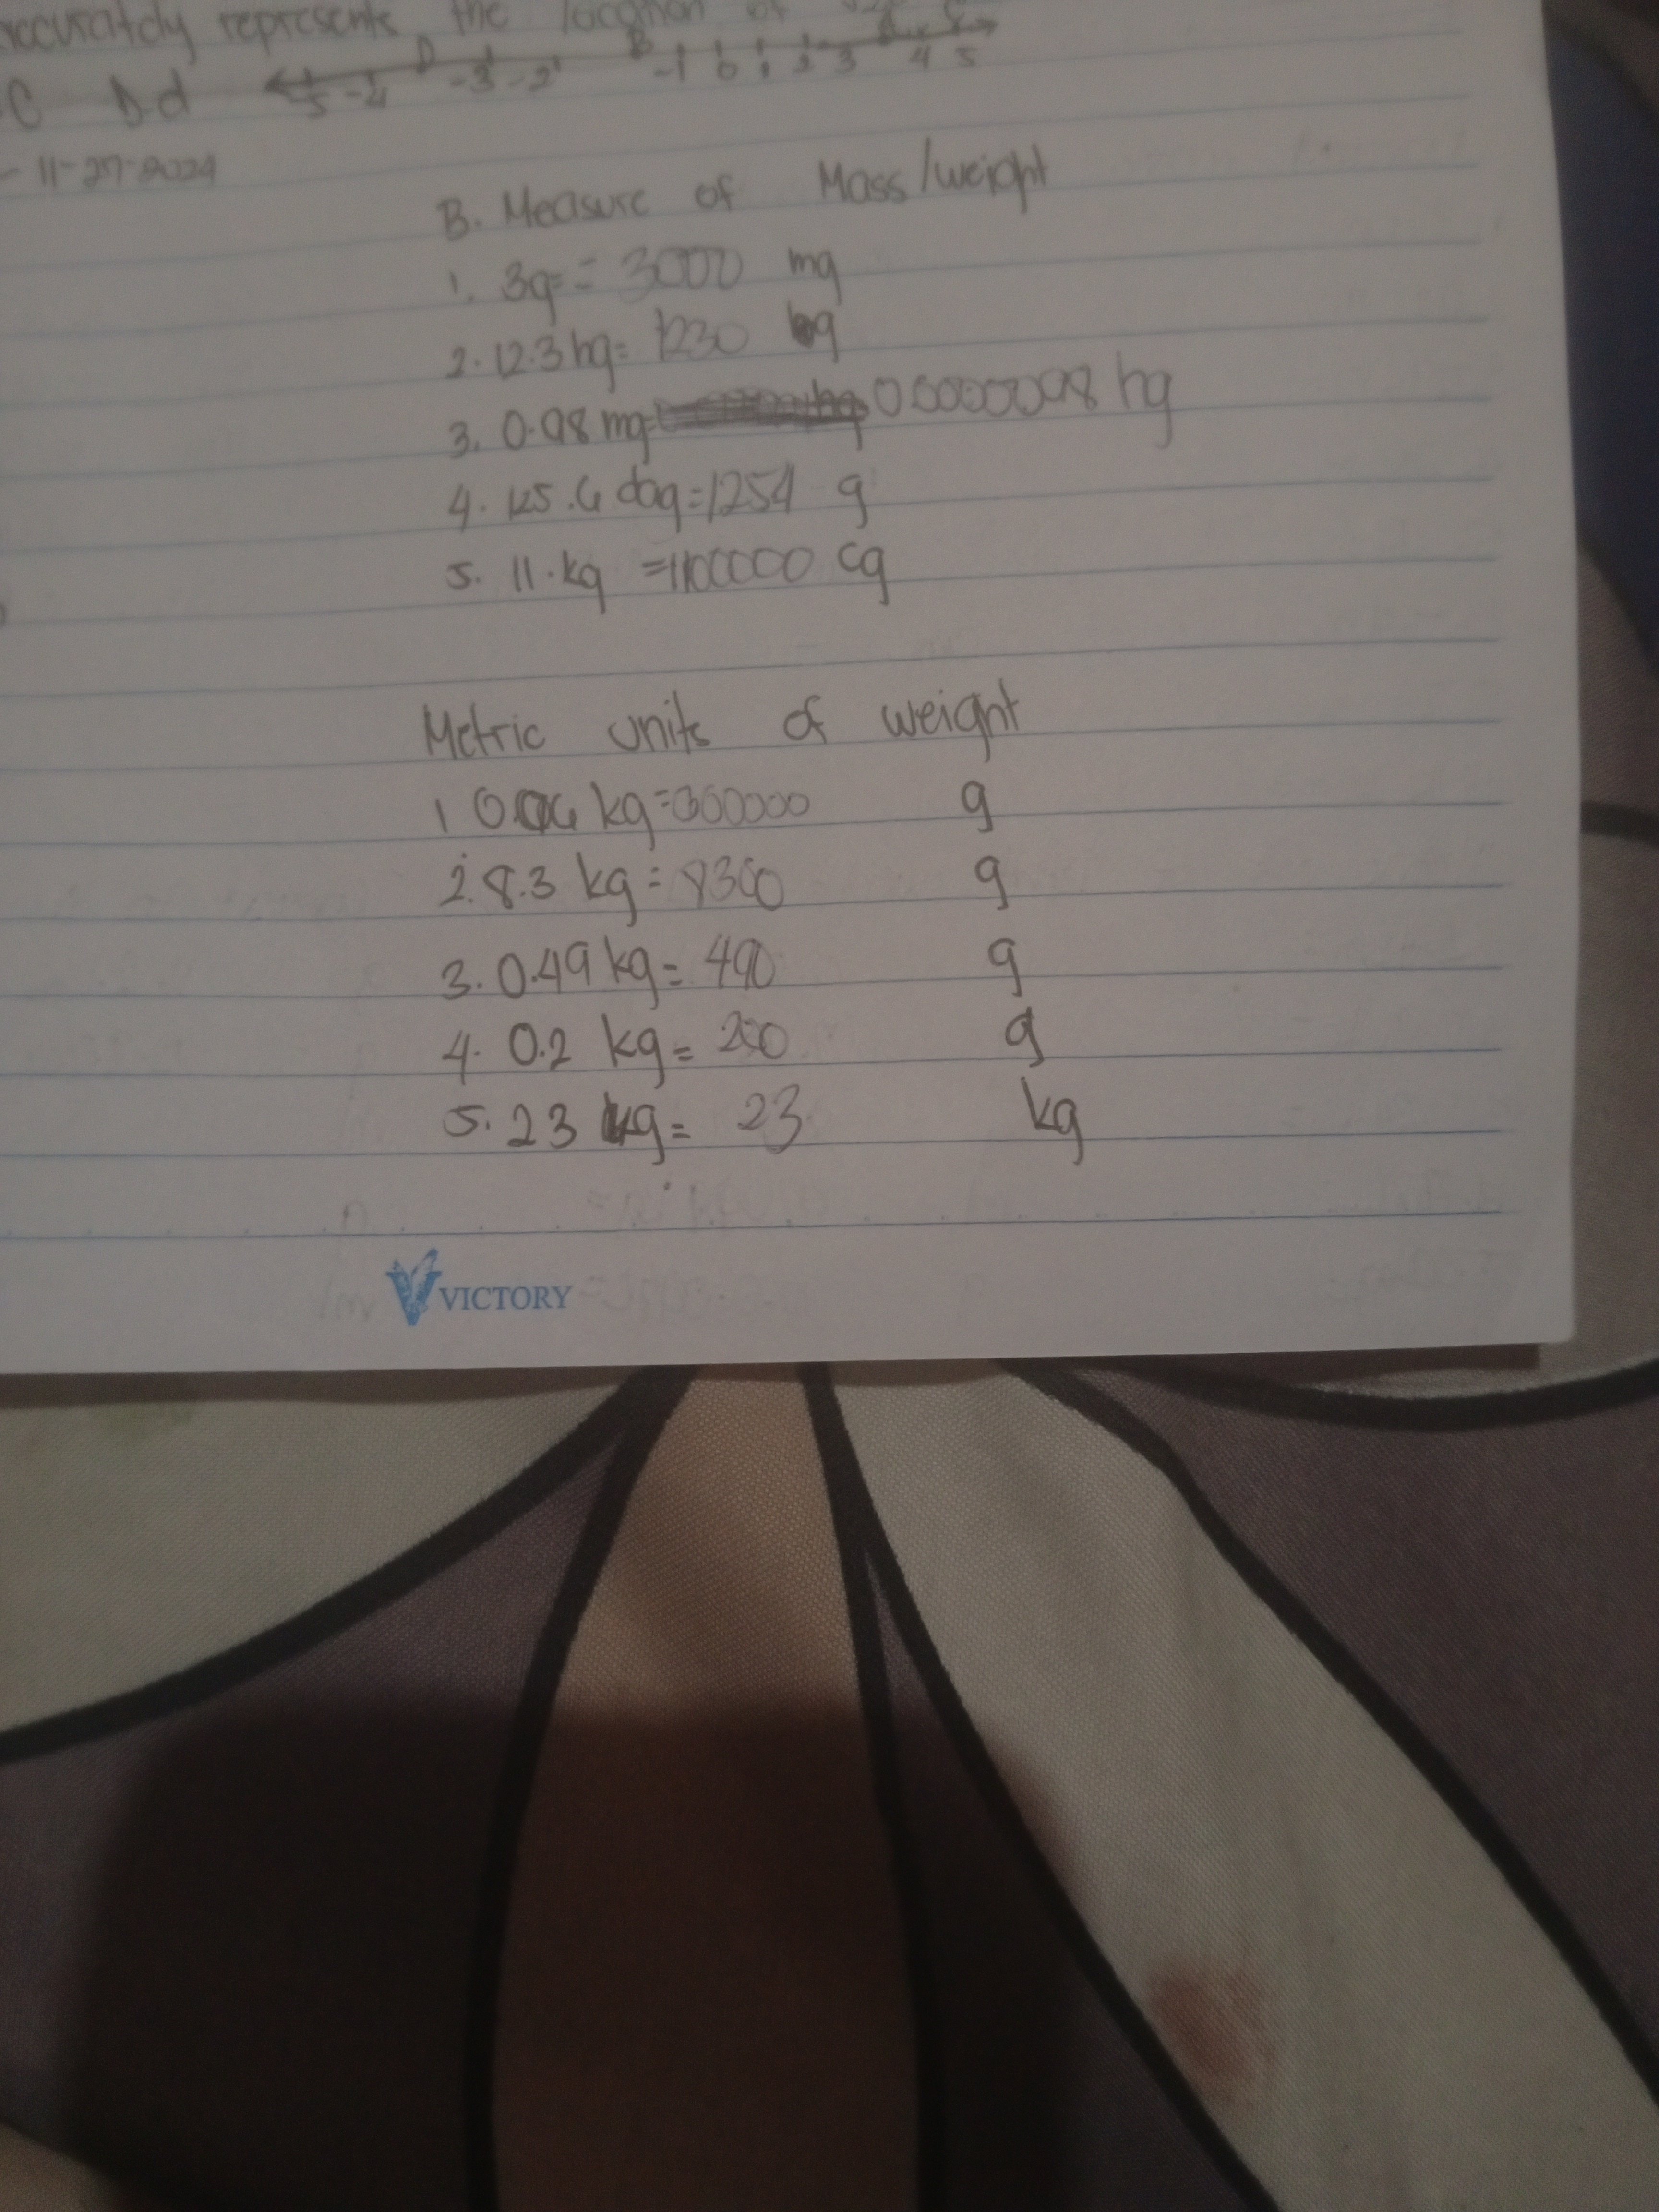 accuratdy represents the location of
C D d -5 -4 D -3 -2 B -1 0 1 2 3 4 5
- 11-27-2024
B. Measure of Mass/weight
1. 3g = 3000 mg
2. 12.3 hg = 1230 g
3. 0.98 mg = hg
4. 125.4 dag = 1254 g
5. 11. kg = 1100000 cg
Metric units of weight
1 kg = g
2. 8.3 kg = 8300 g
3. 0.49 kg = 490 g
4. 0.2 kg = 200 g
5. 23 kg = 23 kg
VICTORY